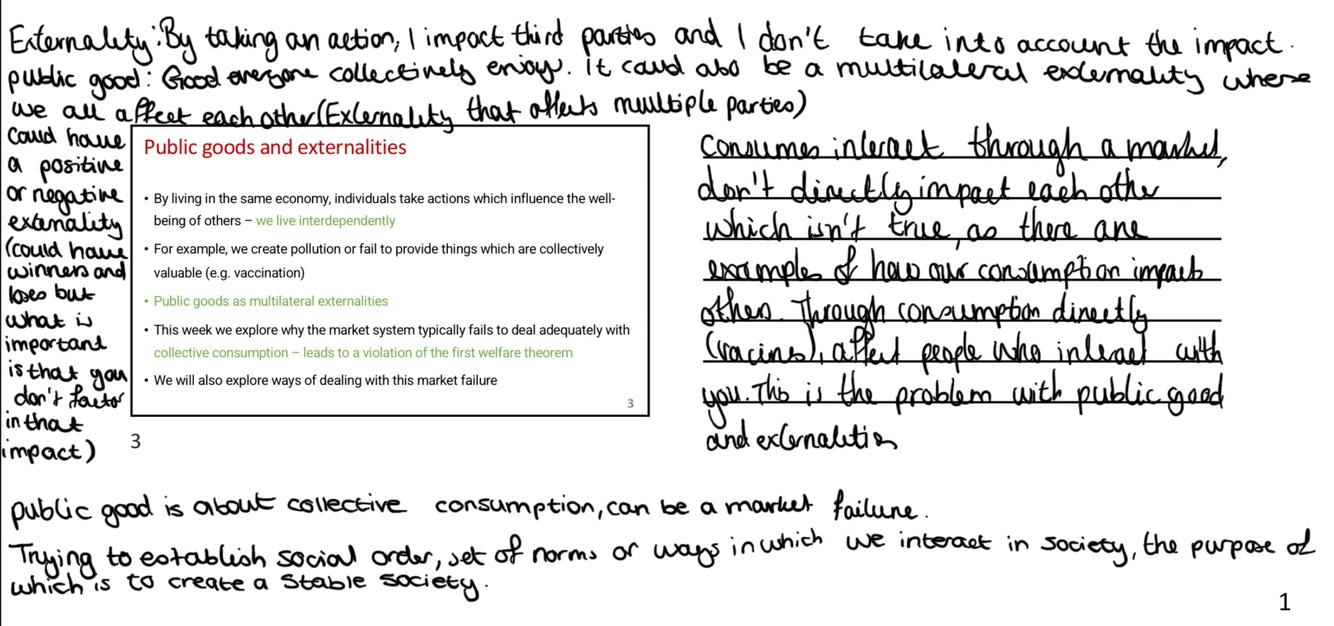 Externality: By taking an action, I impact third parties and I don't take into account the impact.
public good: Good everyone collectively enjoys. it could also be a multilateral externality where
we all affect each other (Externality that affects multiple parties)
could have
a positive
or negative
externality
(could have
winners and
loses but
what is
important
is that you
don't factor
in that
impact)
Public goods and externalities
• By living in the same economy, individuals take actions which influence the well-
being of others – we live interdependently
• For example, we create pollution or fail to provide things which are collectively
valuable (e.g. vaccination)
• Public goods as multilateral externalities
• This week we explore why the market system typically fails to deal adequately with
collective consumption – leads to a violation of the first welfare theorem
• We will also explore ways of dealing with this market failure
3
3
Consumes interact through a market,
don't directly impact each other
which isn't true, as there are
examples of how our consumption impacts
others. Through consumption directly
(vacines), affect people who interact with
you. This is the problem with public good
and externalities
public good is about collective consumption, can be a market failure.
Trying to establish social order, set of norms or ways in which we interact in society, the purpose of
which is to create a stable society.
1